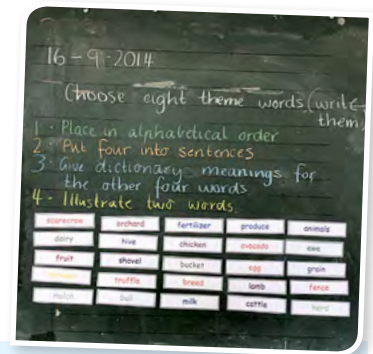 16-9-2014
Choose eight theme words (write
them
1. Place in alphabetical order
2. Put four into sentences
3. Give dictionary meanings for
the other four words
4. Illustrate two words.
scarecrow orchard fertilizer produce animals
dairy hive chicken avocado ewe
fruit shovel bucket egg grain
truffle bread lamb fence
mulch bull milk cattle herd